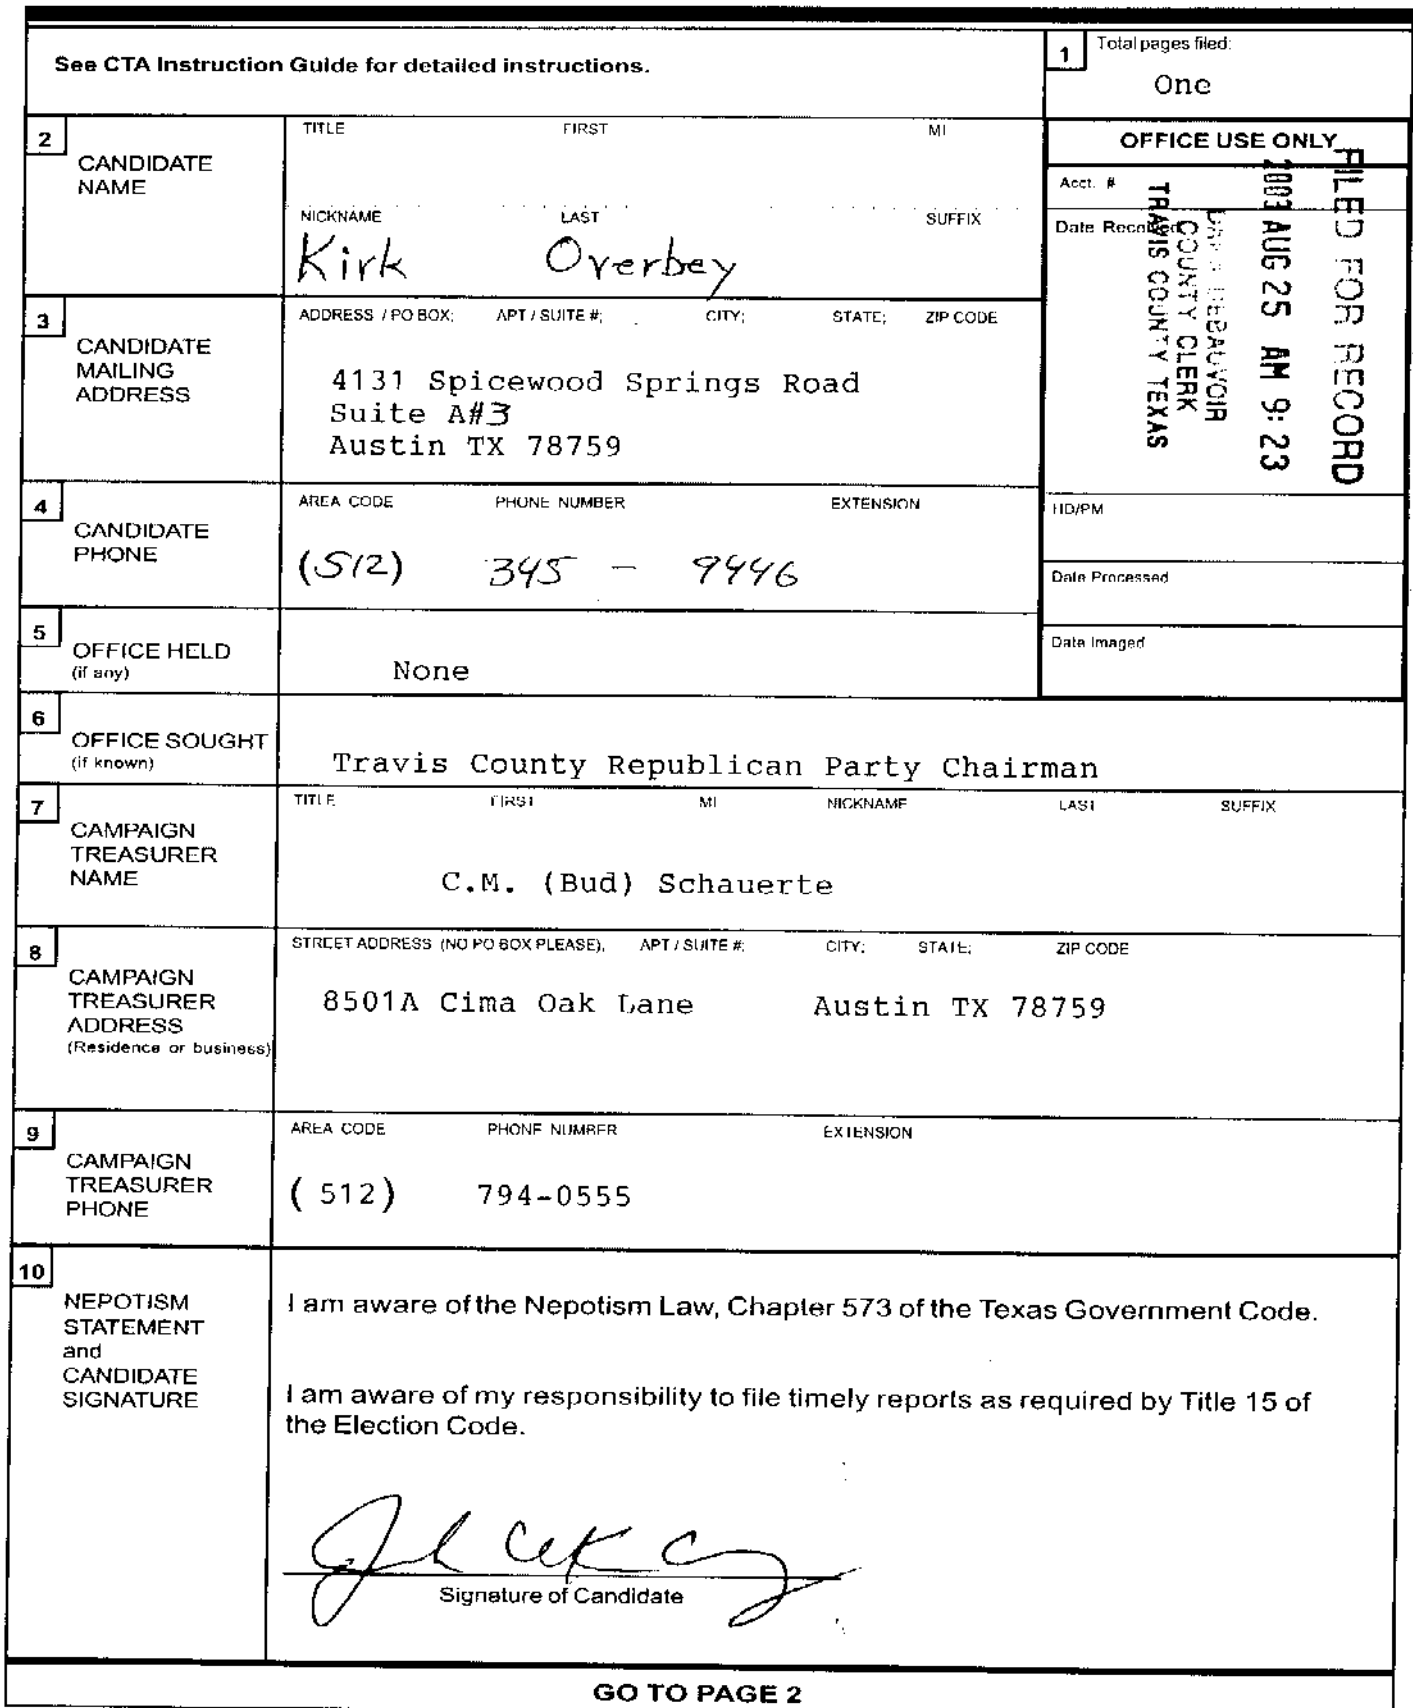 See CTA Instruction Guide for detailed instructions.
1 Total pages filed:
One
2 CANDIDATE NAME
TITLE FIRST MI
NICKNAME LAST SUFFIX
Kirk Overbey
OFFICE USE ONLY
Acct. #
Date Received
FILED FOR RECORD
2003 AUG 25 AM 9:23
DEBAUVOIR
COUNTY CLERK
TRAVIS COUNTY TEXAS
3 CANDIDATE MAILING ADDRESS
ADDRESS / PO BOX; APT / SUITE #; CITY; STATE; ZIP CODE
4131 Spicewood Springs Road
Suite A#3
Austin TX 78759
4 CANDIDATE PHONE
AREA CODE PHONE NUMBER EXTENSION
(512) 345 - 9446
HD/PM
Date Processed
Date Imaged
5 OFFICE HELD
(if any)
None
6 OFFICE SOUGHT
(if known)
Travis County Republican Party Chairman
7 CAMPAIGN TREASURER NAME
TITLE FIRST MI NICKNAME LAST SUFFIX
C.M. (Bud) Schauerte
8 CAMPAIGN TREASURER ADDRESS
(Residence or business)
STREET ADDRESS (NO PO BOX PLEASE); APT / SUITE #; CITY; STATE; ZIP CODE
8501A Cima Oak Lane Austin TX 78759
9 CAMPAIGN TREASURER PHONE
AREA CODE PHONE NUMBER EXTENSION
(512) 794-0555
10 NEPOTISM STATEMENT and CANDIDATE SIGNATURE
I am aware of the Nepotism Law, Chapter 573 of the Texas Government Code.
I am aware of my responsibility to file timely reports as required by Title 15 of
the Election Code.
Signature of Candidate
GO TO PAGE 2